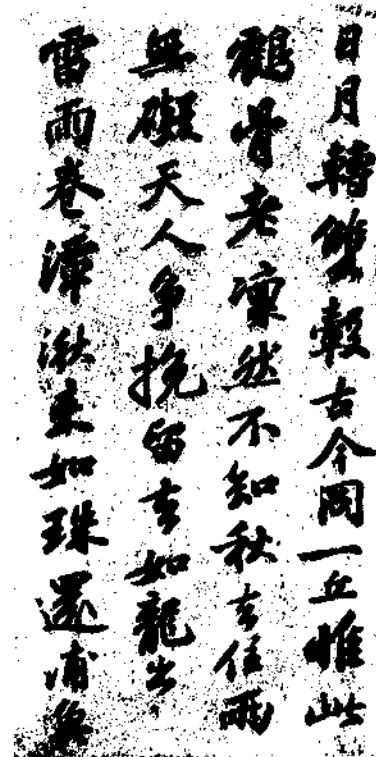 日月轉雙轂古今同一丘惟此
鶴骨老凜然不知秋去住兩
無礙天人爭挽留去如龍出
雷雨卷潭湫來如珠還浦魚